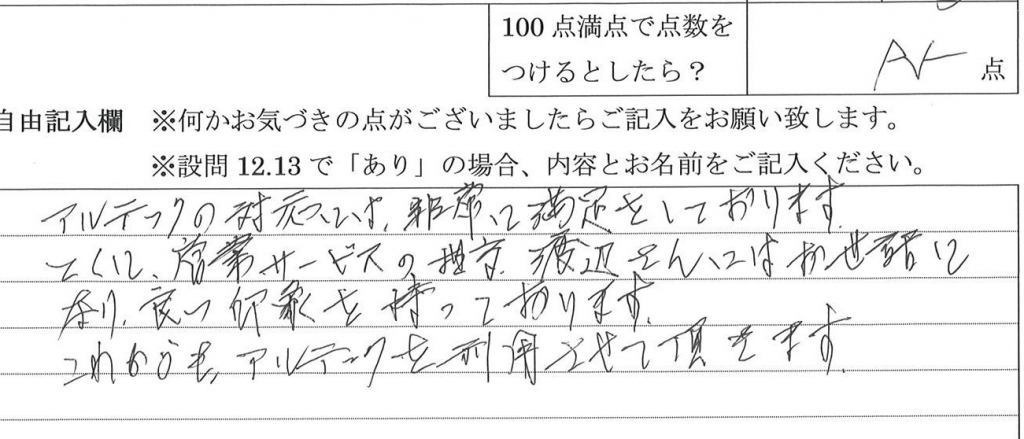 100 点満点で点数を
つけるとしたら？
点
自由記入欄 ※何かお気づきの点がございましたらご記入をお願い致します。
※設問 12.13 で「あり」の場合、内容とお名前をご記入ください。
アルテックの対応には、非常に満足をしております。
とくに、営業サービスの 渡辺さんにはお世話に
なり、良い印象を持っております。
これからも、アルテックを利用させて頂きます。